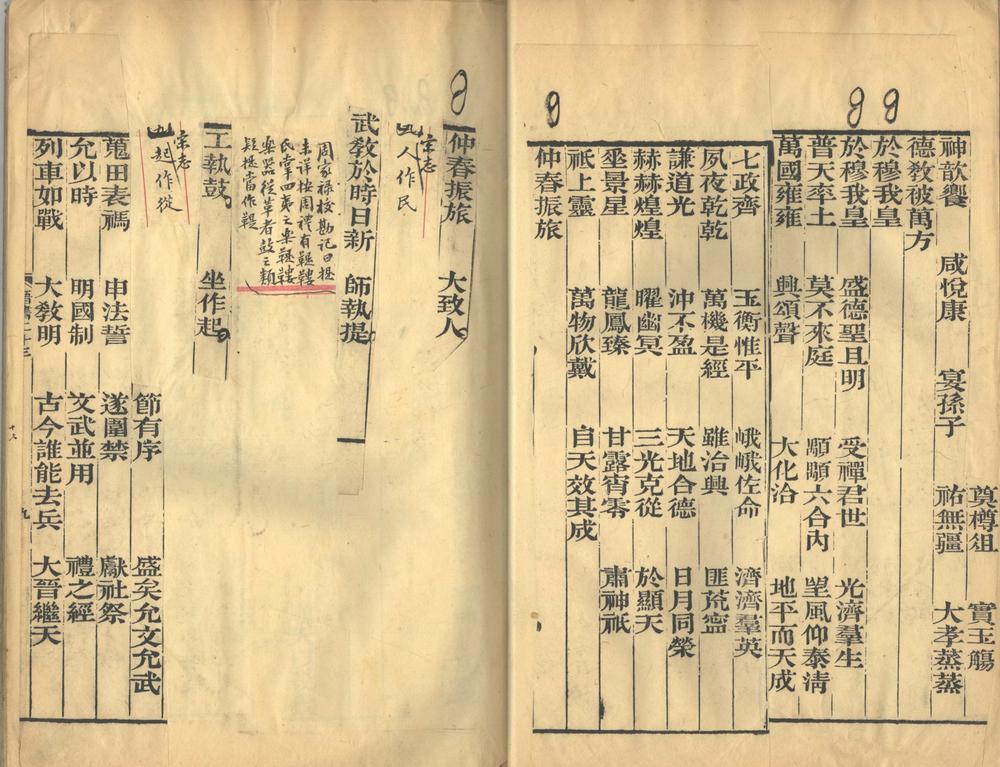 奠樽俎 實玉觴
神歆饗 咸悅康 宴孫子 祐無疆 大孝蒸蒸
德教被萬方
於穆我皇
於穆我皇 盛德聖且明 受禪君世 光濟羣生
普天率土 莫不來庭 顒顒六合內 朢風仰泰清
萬國雍雍 興頌聲 大化洽 地平而天成
七政齊 玉衡惟平 峨峨佐命 濟濟羣英
夙夜乾乾 萬機是經 雖治興 匪荒寧
謙道光 沖不盈 天地合德 日月同榮
赫赫煌煌 曜幽冥 三光克從 於顯天
垂景星 龍鳳臻 甘露宵零 肅神祇
祇上靈 萬物欣戴 自天效其成
仲春振旅
仲春振旅 大致人
宋志
人作民
武教於時日新 師執提
周家祿校勘記曰提
未詳按周禮有鞮鞻
氏掌四夷之樂鞮鞻
樂器從革者鼓之類
疑提當作鞮
工執鼓 坐作起
宋志
起作從
節有序 盛矣允文允武
蒐田表禡 申法誓 遂圍禁 獻社祭
允以時 明國制 文武並用 禮之經
列車如戰 大教明 古今誰能去兵 大晉繼天
晉書二十三 九